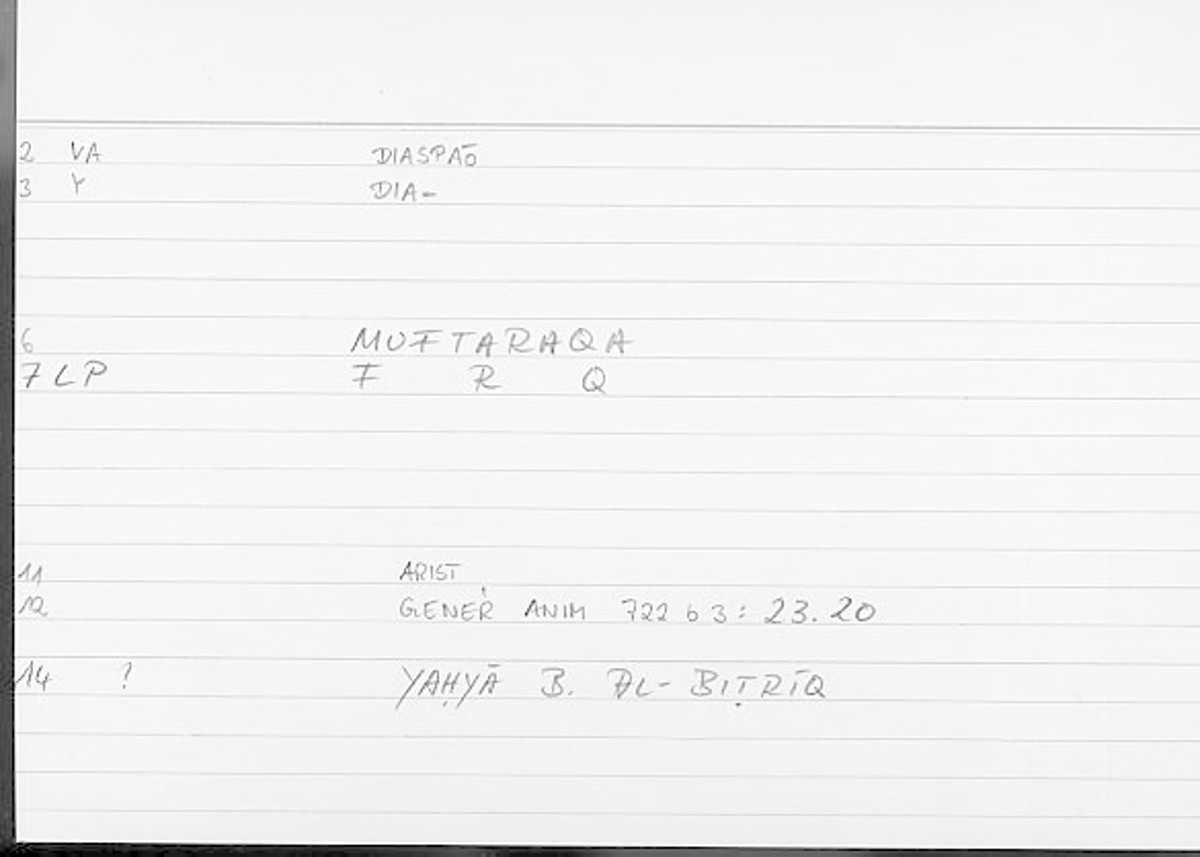 2 VA DIASPAŌ
3 Y DIA-
6 MUFTARAQA
7 LP F R Q
11 ARIST
12 GENER ANIM 722 b 3: 23.20
14 ? YAḤYĀ B. AL-BIṬRĪQ